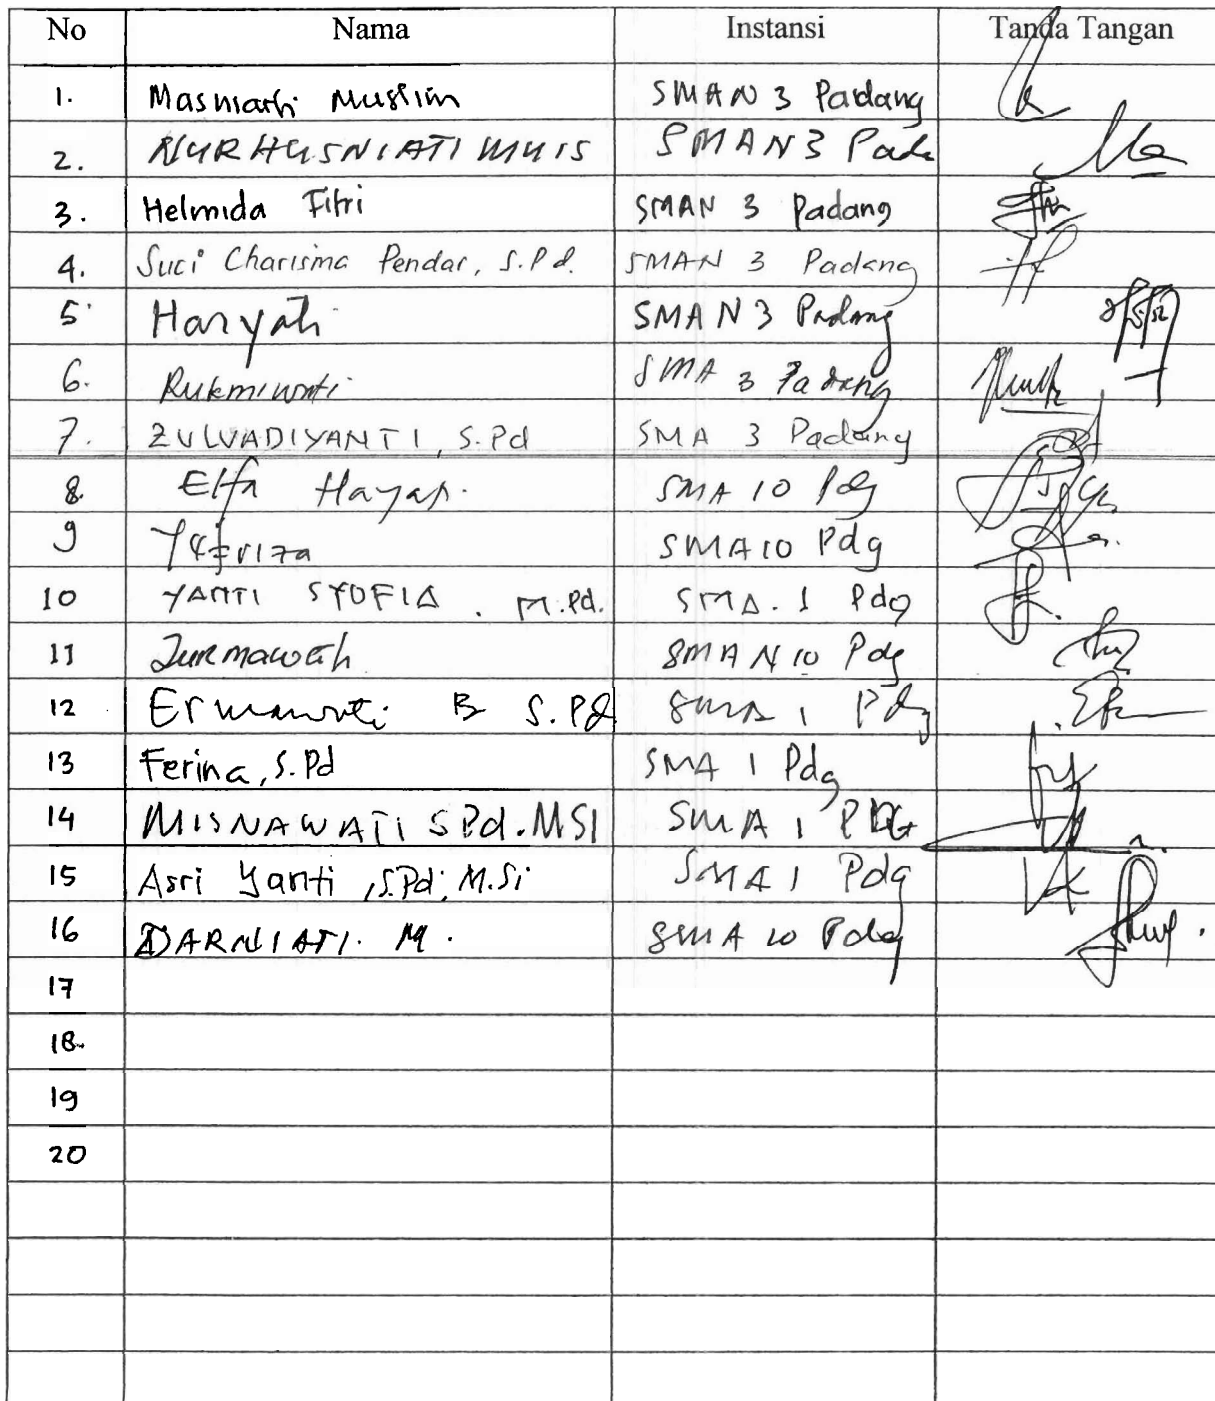 No Nama Instansi Tanda Tangan
1. Masniarti Muslim SMAN 3 Padang
2. NURHUSNIATI MUIS SMAN 3 Pada
3. Helmida Fitri SMAN 3 Padang
4. Suci Charisma Pendar, S.Pd. SMAN 3 Padang
5. Haryati SMAN 3 Padang
6. Rukmiwati SMA 3 Padang
7. ZULVADIYANTI, S.Pd SMA 3 Padang
8. Elfa Hayati. SMA 10 Pdg
9 SMA 10 Pdg
10 YANTI SYOFIA. M.Pd. SMA. 1 Pdg
11 Jurmawati SMAN 10 Pdg
12 Ermawati B S.Pd SMA 1 Pdg
13 Ferina, S.Pd SMA 1 Pdg
14 MISNAWATI SPd.MSI SMA 1 PDG
15 Asri Yanti, S.Pd, M.Si SMA 1 Pdg
16 DARNIATI. M. SMA 10 Pdg
17
18.
19
20